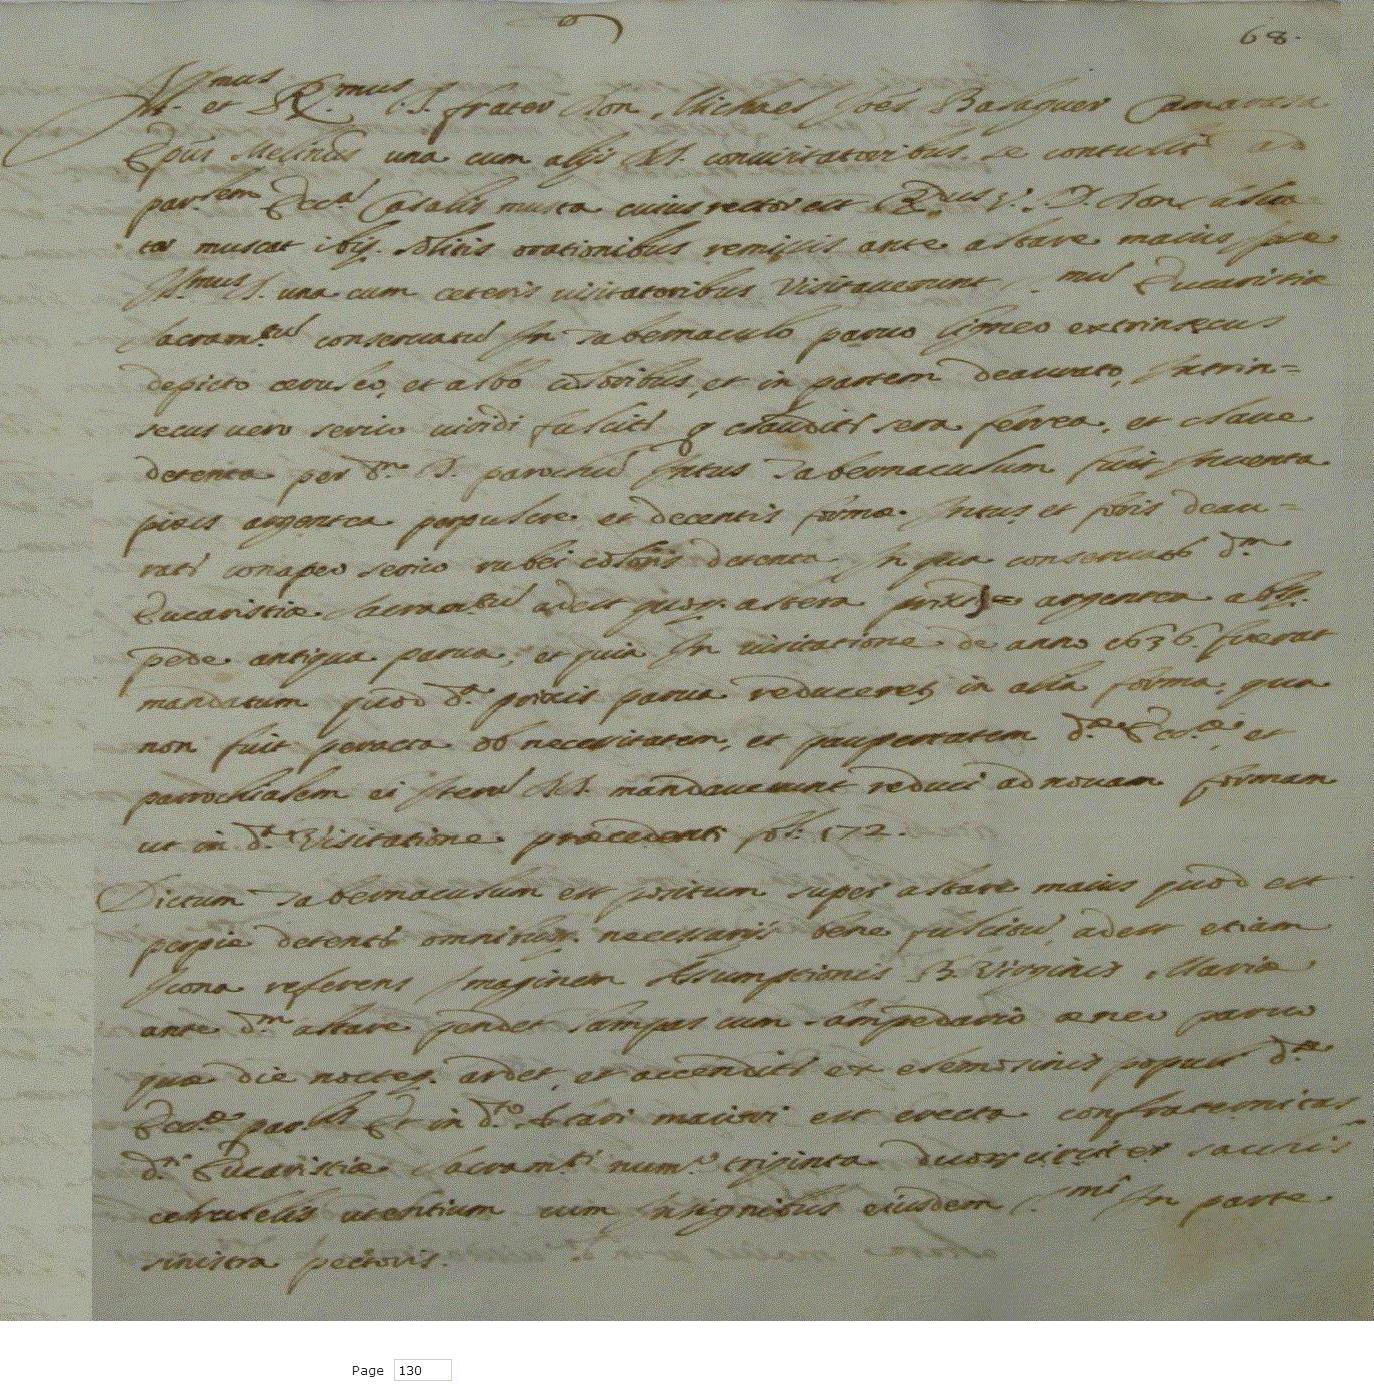 68.
Ill.mus et R.mus D. frater Don Michael Joes Balaguer Camarasa
Epus Melitens una cum alijs DD. convisitatoribus se contulit ad
par.lem Eccl. Casalis musta cuius rector est R.dus D. Don
muscat ibiq. solitis orationibus remissis ante altare maius ipse
Ill.mus D. una cum ceteris visitatoribus visitaverunt S.mum Eucaristiæ
Sacram.tum conservatu In Tabernaculo parvo ligneo extrinsecus
depicto ceruleo, et albo coloribus, et in partem deaurato, Intrin=
secus vero serico viridi fulcitu clauditur sera ferrea, et clave
detenta per d.m D. parochu Intus Tabernaculum fuit Inventa
pixis argentea perpulcre et decentis forme Intus et foris deau=
rati conapeo serico rubei coloris detenta In qua conservatur d.m
Eucaristiæ Sacram.tum adest quoq. altera pixis argentea absq.
pede antiqua parva, et quia In visitatione de anno 1636 fuerat
mandatum quod d.a pixis parva reduceret in alia forma, qua
non fuit peracta ob necessitatem, et paupertatem d.æ Eccl.æ, et
parrochialem ei Iteru DD. mandaverunt reduci ad novam formam
ut in d.a Visitatione præcedenti fol: 172.
Dictum Tabernaculum est positum super altare maius quod est
perpie detentu omnibusq. necessarijs bene fulcitu, adest etiam
Icona referens Imaginem Assumptionis B. Virginis Mariæ
ante d.m altare pendet lampas cum lampedario æneo parvo
quæ die nocteq. ardet, et accenditur ex elemosinis populi d.æ
Eccl.æ par.lis Et in d.to Altari maiori est erecta confraternitas
d.i Eucaristiæ Sacram.ti num.o triginta saccis
utentium cum Insignibus eiusdem S.mi In parte
sinistra pectoris.
Page 130